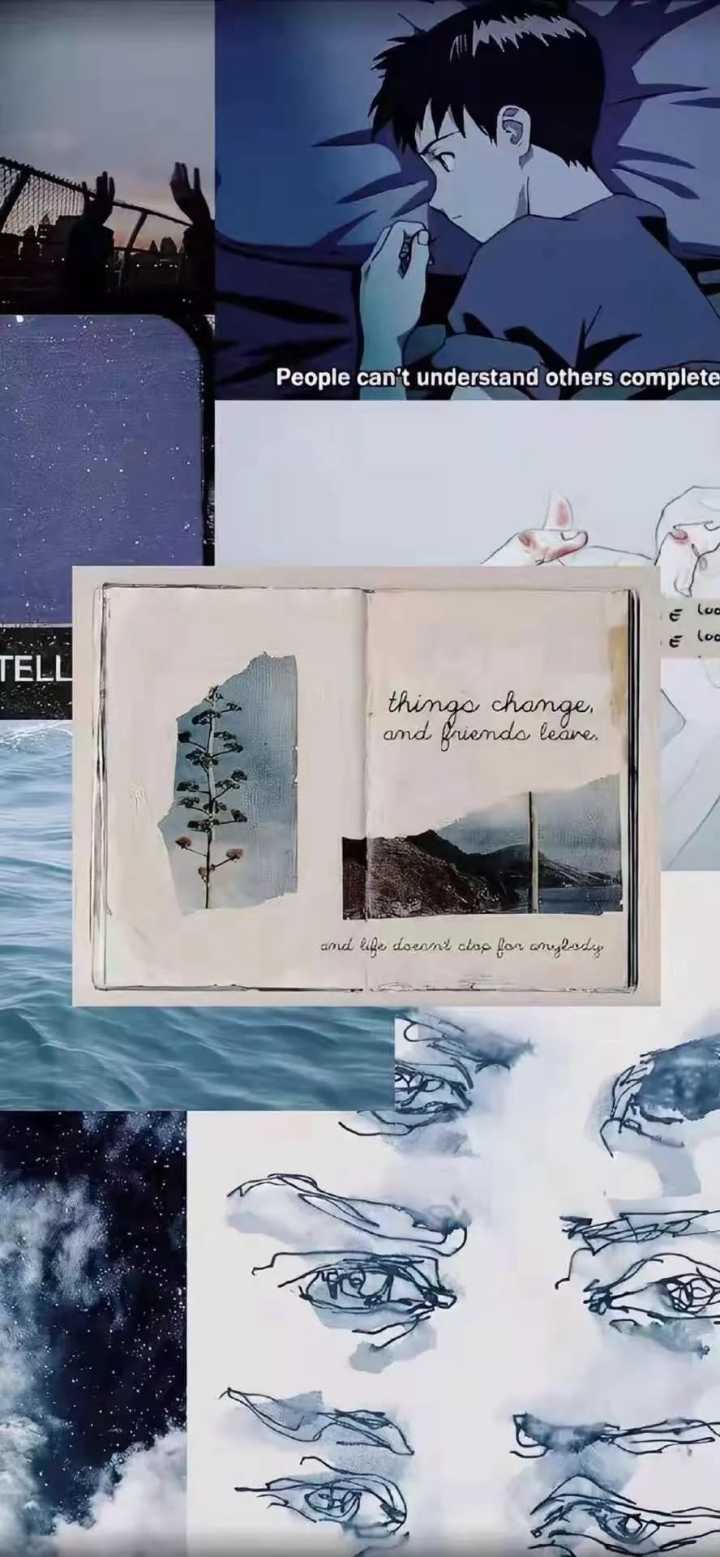 People can't understand others complete
TELL
things change,
and friends leave.
and life doesn't stop for anybody